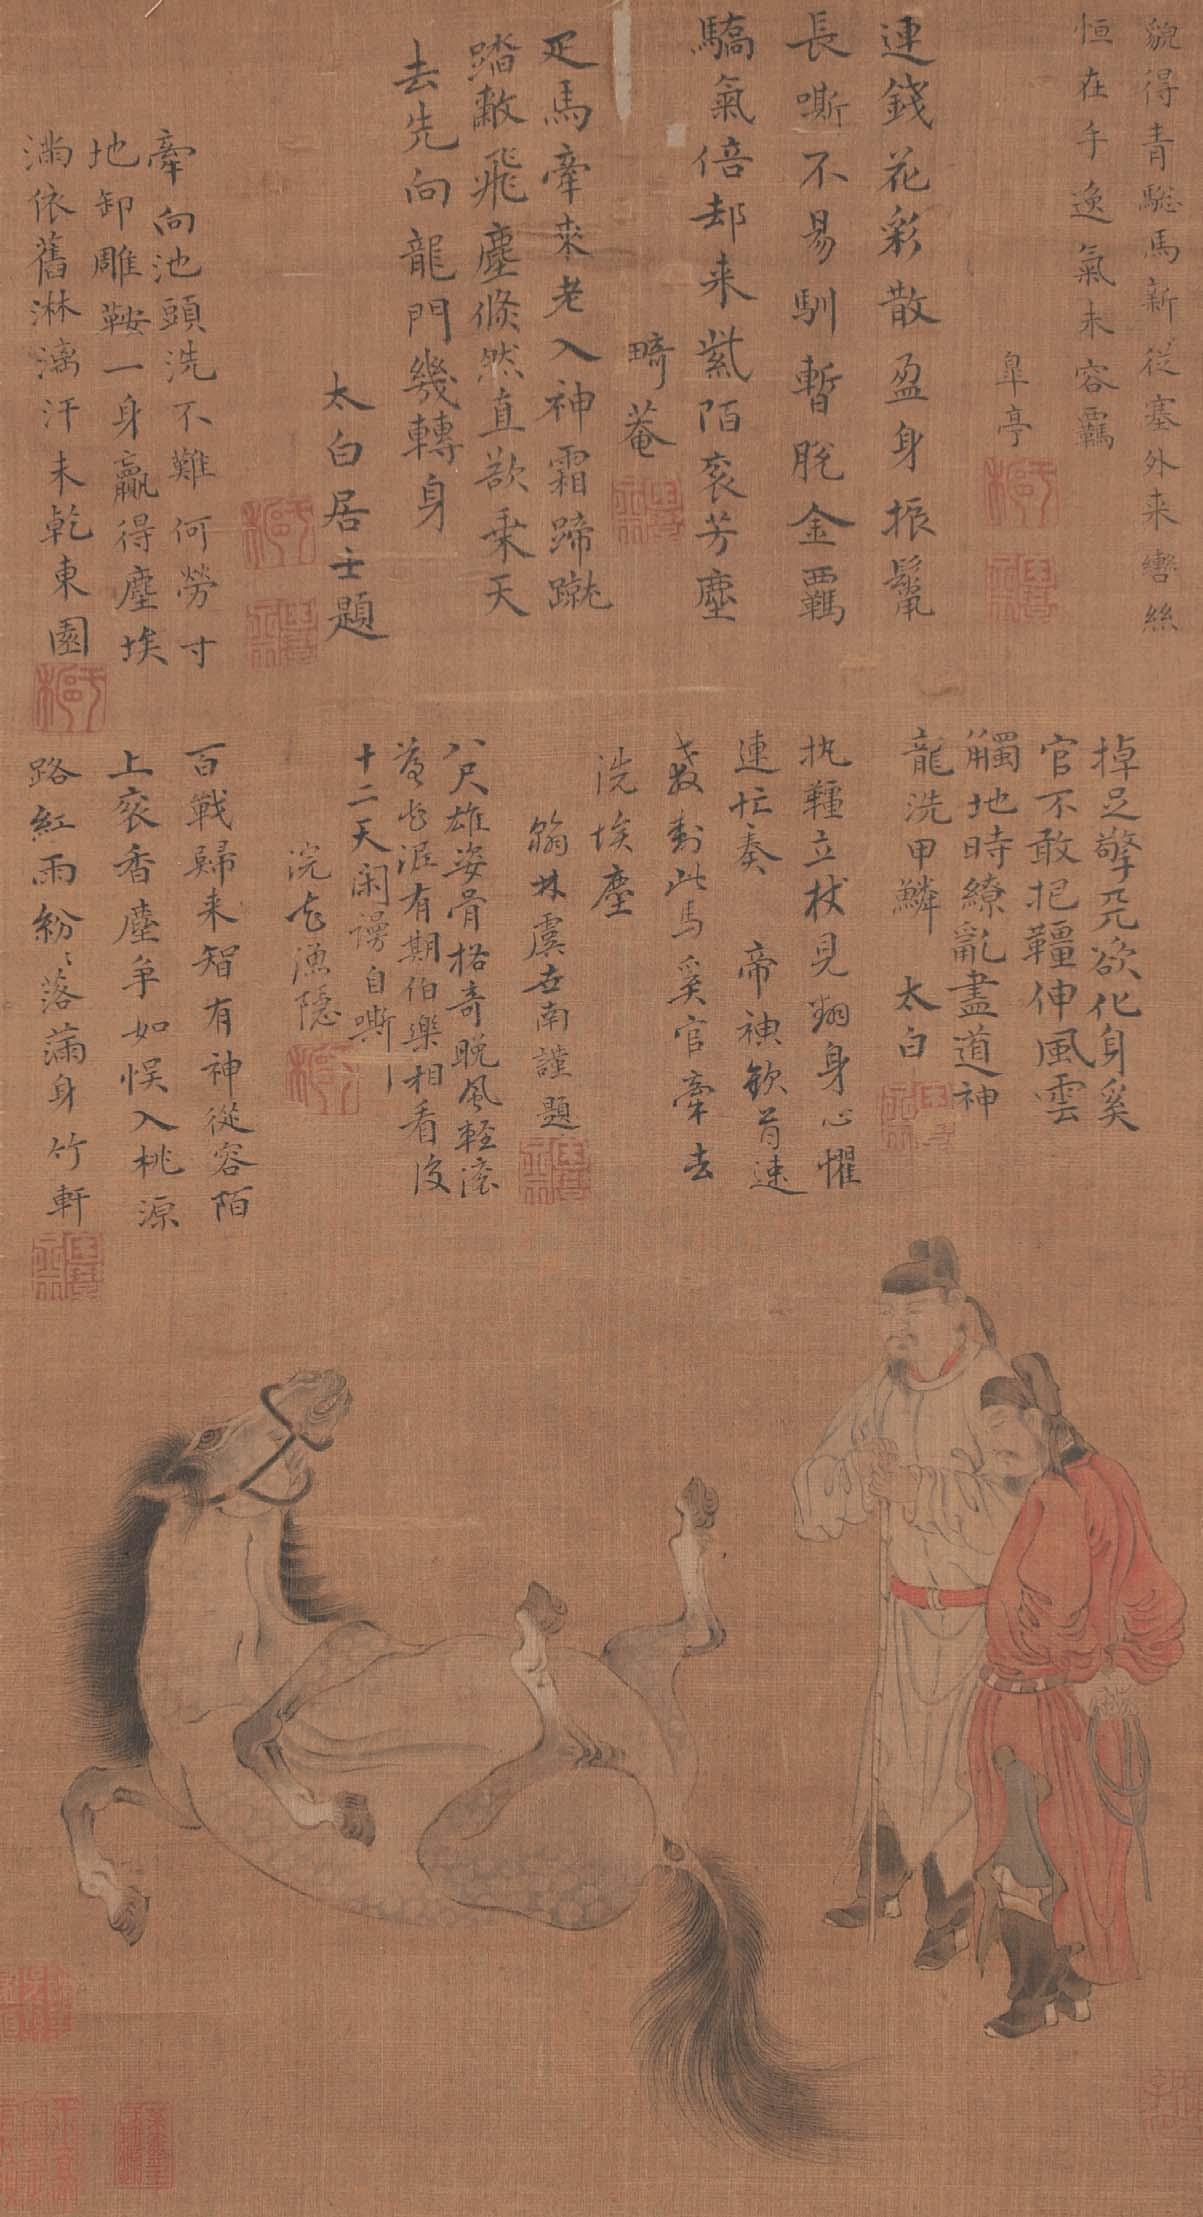 貌得青驄馬新從塞外来轡絲
恒在手逸氣未容羈
皐亭
連錢花彩散盈身振鬣
長嘶不易馴暫脫金羈
驕氣倍却来紫陌衮芳塵
畸菴
疋馬牽來老入神霜蹄蹴
踏皷飛塵倏然直欲乘天
去先向龍門幾轉身
太白居士題
牽向池頭洗不難何勞寸
地卸雕鞍一身贏得塵埃
滿依舊淋漓汗未乾東園
掉足擎尻欲化身奚
官不敢把韁伸風雲
觸地時繚亂盡道神
龍洗甲鱗 太白
执韁立杖見翻身心懼
連忙奏 帝神欽首速
教對此馬奚官牽去
洗埃塵
翰林虞世南謹題
八尺雄姿骨格奇晚風輕滾
有期伯樂相看後
十二天閑謾自嘶
浣花漁隱
百戰歸来智有神從容陌
上衮香塵争如悞入桃源
路紅雨紛〻落滿身竹軒